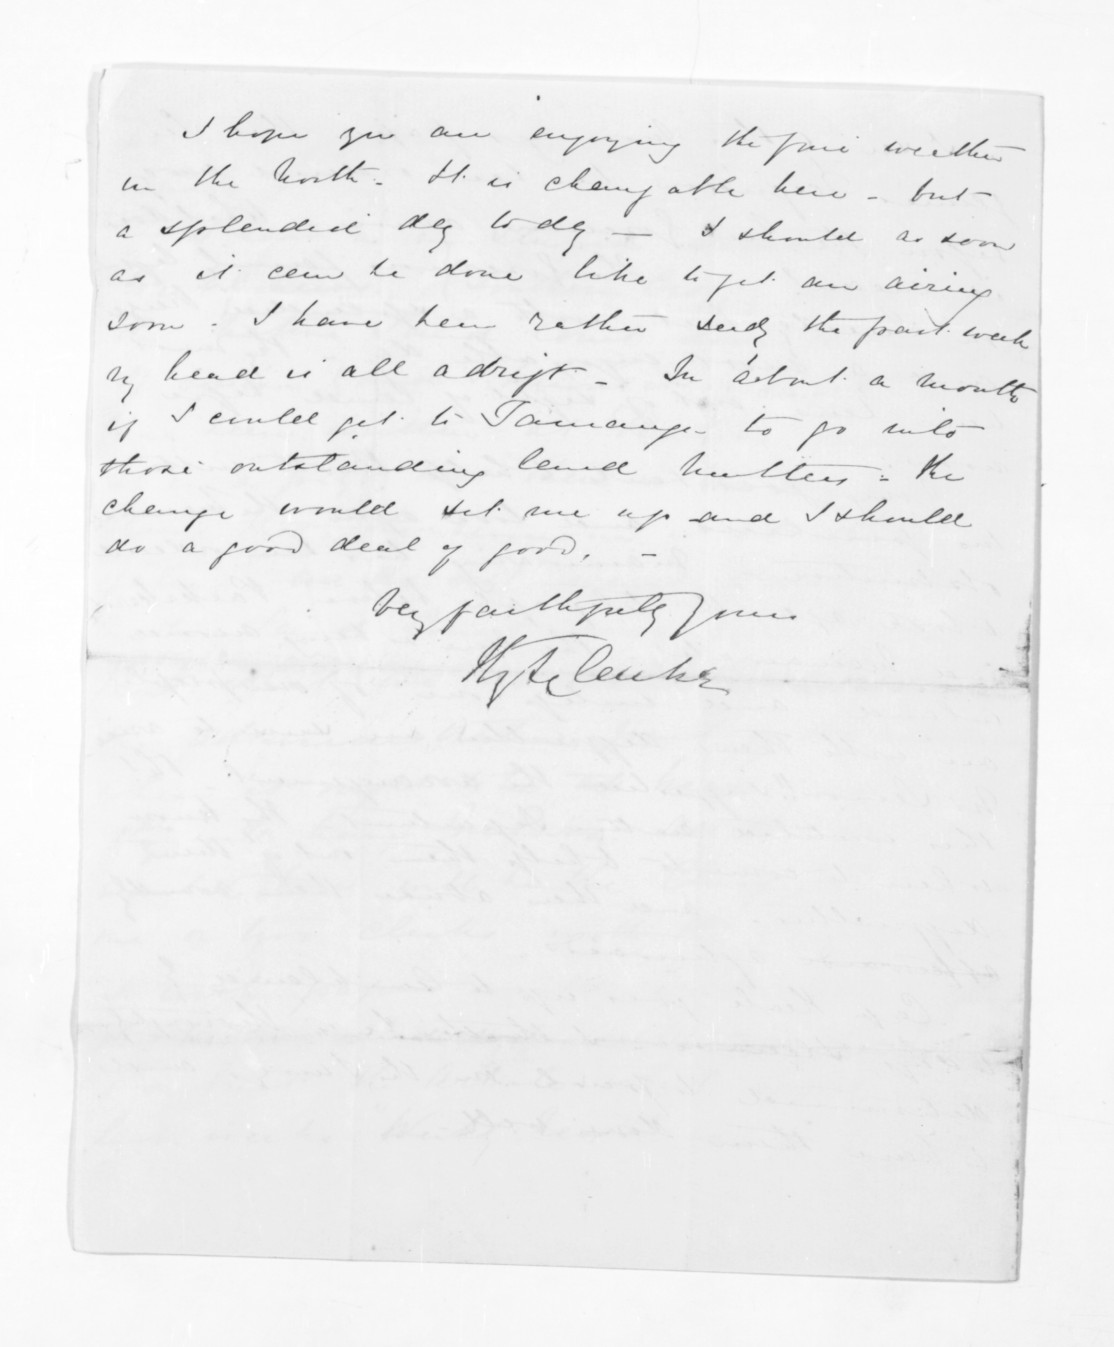 I hope you are enjoying the fine weather
in the North - It is changeable here - but
a splendid day to day - I should as soon
as it can be done like to get an airing
soon - I have been rather seedy the past week
my head is all adrift - In about a month
if I could get to Tauranga to go into
those outstanding land matters - the
change would set me up and I should
do a good deal of good. -
Very faithfully yours
Hy T Clarke